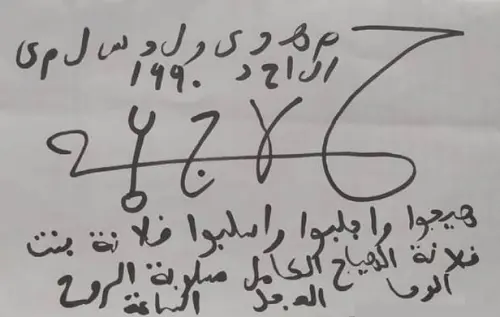 م ه د ى و ل د س ل م ى
الاحد ١٩٩٠
ح ४ ج
هيجوا واجلبوا واسلبوا فلانة بنت
فلانة الهياج الكامل مسلوبة الروح
الوحا العجل الساعة